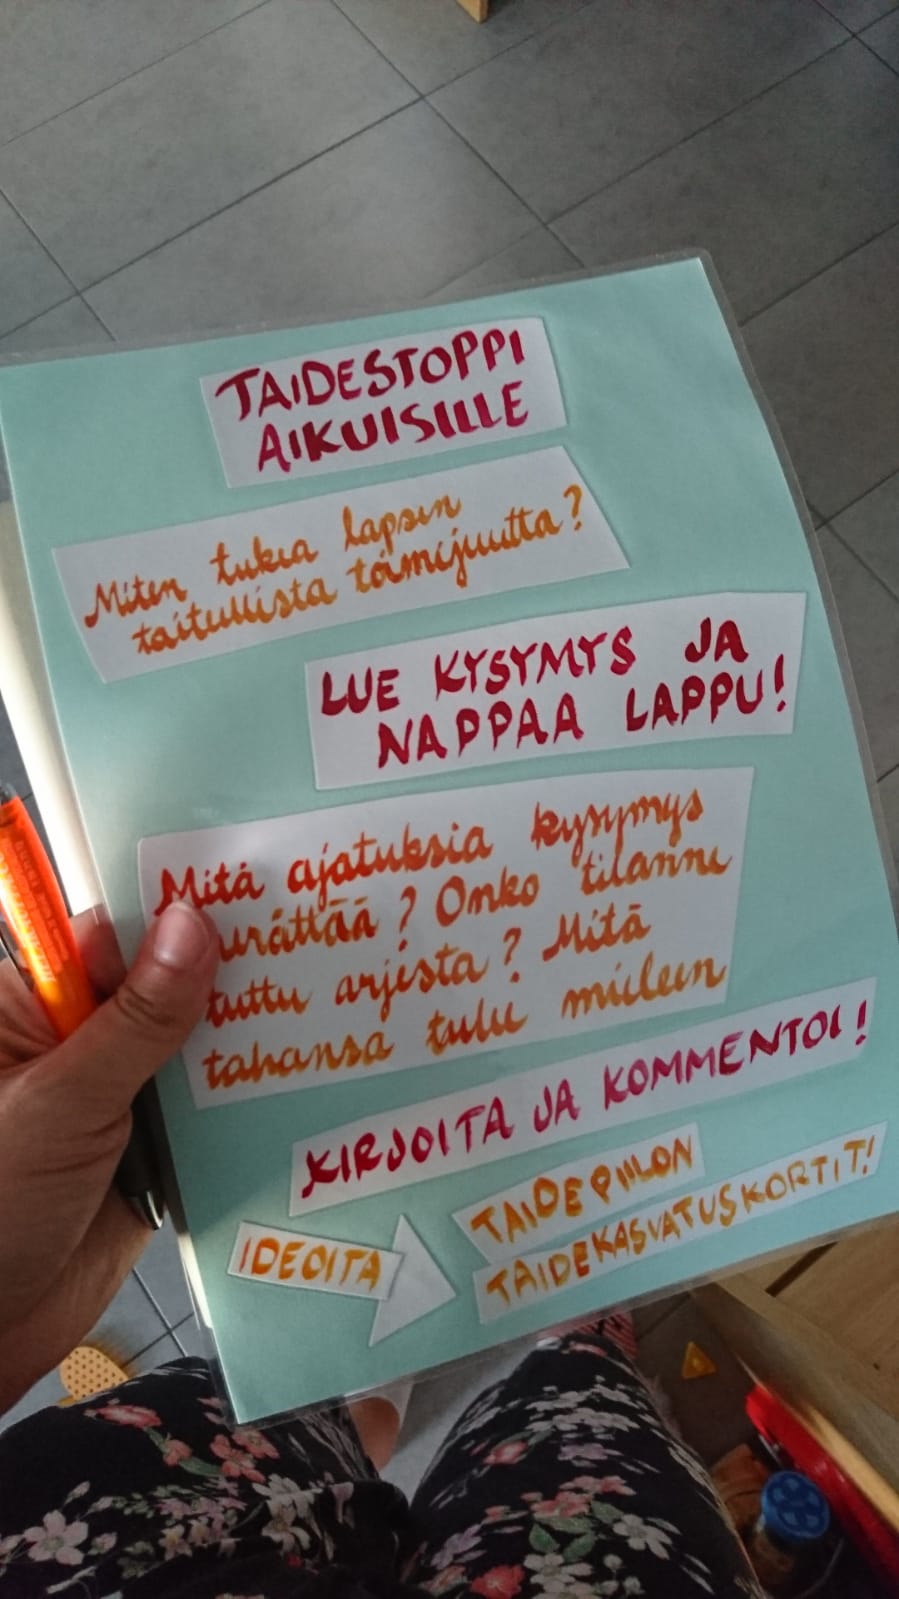 TAIDESTOPPI
AIKUISILLE
Miten tukea lapsen
taiteellista toimijuutta?
LUE KYSYMYS JA
NAPPAA LAPPU!
Mitä ajatuksia kysymys
herättää? Onko tilanne
tuttu arjesta? Mitä
tahansa tulee mieleen
KIRJOITA JA KOMMENTOI!
IDEOITA
TAIDEPIILON
TAIDEKASVATUSKORTIT!